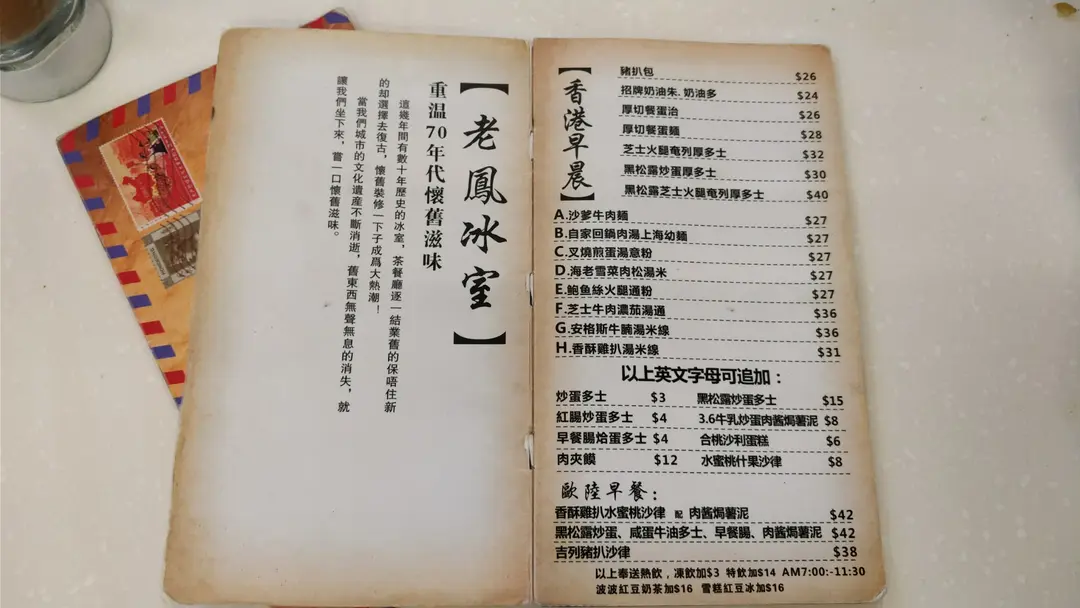 【老鳳冰室】
重温70年代懷舊滋味
這幾年間有數十年歷史的冰室，茶餐廳逐 結業舊的保唔住新
的却選擇去復古，懷舊裝修一下子成爲大熱潮！
當我們城市的文化遺産不斷消逝，舊東西無聲無息的消失，就
讓我們坐下來，嘗一口懷舊滋味。
【香港早晨】
豬扒包 $26
招牌奶油朱.奶油多 $24
厚切餐蛋治 $26
厚切餐蛋麵 $28
芝士火腿奄列厚多士 $32
黑松露炒蛋厚多士 $30
黑松露芝士火腿奄列厚多士 $40
A.沙爹牛肉麵 $27
B.自家回鍋肉湯上海幼麵 $27
C.叉燒煎蛋湯意粉 $27
D.海老雪菜肉松湯米 $27
E.鮑鱼絲火腿通粉 $27
F.芝士牛肉濃茄湯通 $36
G.安格斯牛腩湯米線 $36
H.香酥雞扒湯米線 $31
以上英文字母可追加：
炒蛋多士 $3 黑松露炒蛋多士 $15
紅腸炒蛋多士 $4 3.6牛乳炒蛋肉酱焗薯泥 $8
早餐腸烚蛋多士 $4 合桃沙利蛋糕 $6
肉夾饃 $12 水蜜桃什果沙律 $8
歐陸早餐：
香酥雞扒水蜜桃沙律 配 肉酱焗薯泥 $42
黑松露炒蛋、咸蛋牛油多士、早餐腸、肉酱焗薯泥 $42
吉列豬扒沙律 $38
以上奉送熱飲，凍飲加$3 特飲加$14 AM7:00:-11:30
波波紅豆奶茶加$16 雪糕紅豆冰加$16